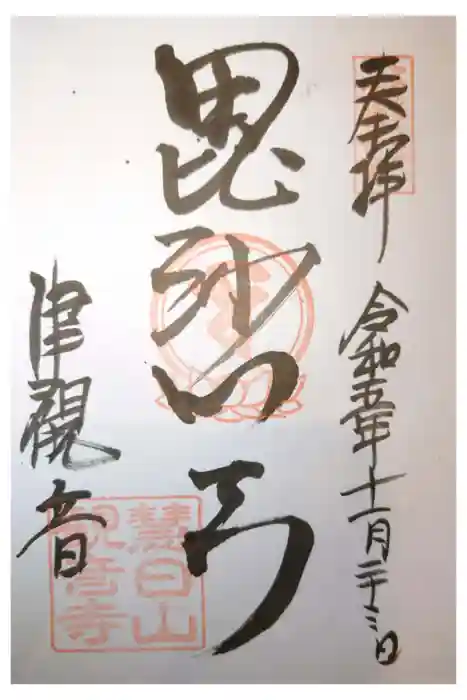 奉拝
令和五年十一月二十三日
毘沙門天
津觀音
慧日山
觀音寺